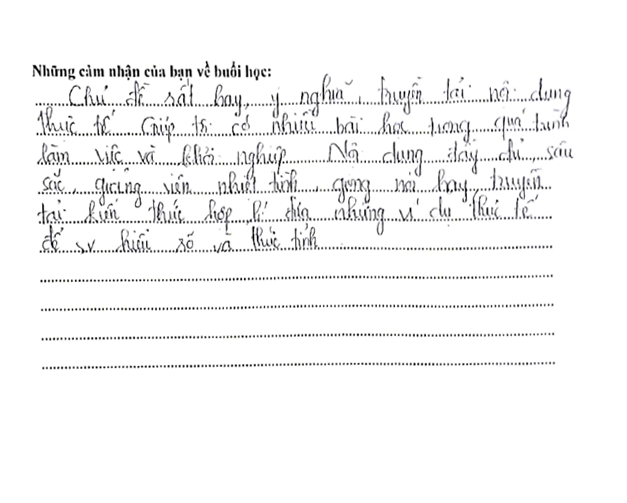 Những cảm nhận của bạn về buổi học:
Chủ đề rất hay, ý nghĩa, truyền tải nội dung
thực tế. Giúp tôi có nhiều bài học trong quá trình
làm việc và khởi nghiệp. Nội dung đầy đủ, sâu
sắc, giảng viên nhiệt tình, giọng nói hay, truyền
tải kiến thức hợp lí đưa những ví dụ thực tế
để hiểu rõ và thức tỉnh